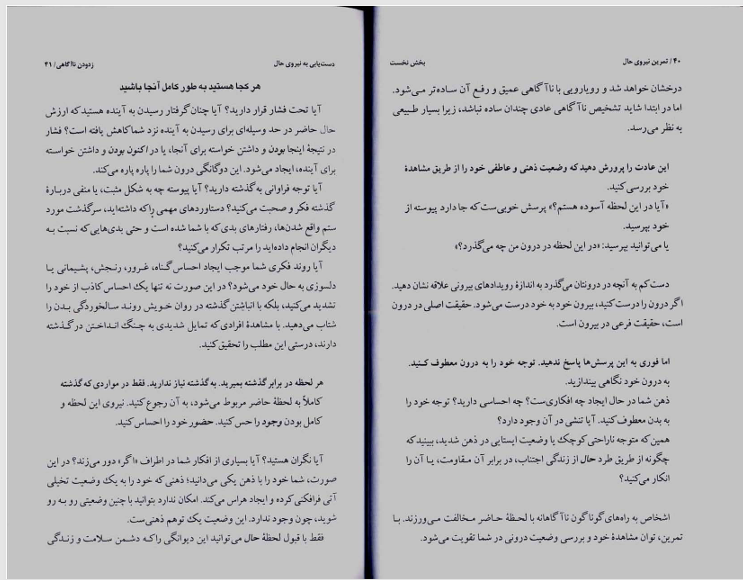 ۴۰ / تمرین نیروی حال
بخش نخست
درخشان خواهد شد و رویارویی با ناآگاهی عمیق و رفع آن ساده‌تر می‌شود.
اما در ابتدا شاید تشخیص ناآگاهی عادی چندان ساده نباشد، زیرا بسیار طبیعی
به نظر می‌رسد.
این عادت را پرورش دهید که وضعیت ذهنی و عاطفی خود را از طریق مشاهدهٔ
خود بررسی کنید.
«آیا در این لحظه آسوده هستم؟» پرسش خوبی‌ست که جا دارد پیوسته از
خود بپرسید.
یا می‌توانید بپرسید: «در این لحظه در درون من چه می‌گذرد؟»
دست کم به آنچه در درونتان می‌گذرد به اندازهٔ رویدادهای بیرونی علاقه نشان دهید.
اگر درون را درست کنید، بیرون خود به خود درست می‌شود. حقیقت اصلی در درون
است، حقیقت فرعی در بیرون است.
اما فوری به این پرسش‌ها پاسخ ندهید. توجه خود را به درون معطوف کنید.
به درون خود نگاهی بیندازید.
ذهن شما در حال ایجاد چه افکاری‌ست؟ چه احساسی دارید؟ توجه خود را
به بدن معطوف کنید. آیا تنشی در آن وجود دارد؟
همین که متوجه ناراحتی کوچک یا وضعیت ایستایی در ذهن شدید، ببینید که
چگونه از طریق طرد حال از زندگی اجتناب، در برابر آن مقاومت، یا آن را
انکار می‌کنید؟
اشخاص به راه‌های گوناگون ناآگاهانه با لحظهٔ حاضر مخالفت می‌ورزند. با
تمرین، توان مشاهدهٔ خود و بررسی وضعیت درونی در شما تقویت می‌شود.
دست‌یابی به نیروی حال
زدودن ناآگاهی / ۴۱
هر کجا هستید به طور کامل آنجا باشید
آیا تحت فشار قرار دارید؟ آیا چنان گرفتار رسیدن به آینده هستید که ارزش
حال حاضر در حد وسیله‌ای برای رسیدن به آینده نزد شما کاهش یافته است؟ فشار
در نتیجهٔ اینجا بودن و داشتن خواسته برای آنجا، یا در اکنون بودن و داشتن خواسته
برای آینده، ایجاد می‌شود. این دوگانگی درون شما را پاره پاره می‌کند.
آیا توجه فراوانی به گذشته دارید؟ آیا پیوسته چه به شکل مثبت، یا منفی دربارهٔ
گذشته فکر و صحبت می‌کنید؟ دستاوردهای مهمی را که داشته‌اید، سرگذشت مورد
ستم واقع شدن‌ها، رفتارهای بدی که با شما شده است و حتی بدی‌هایی که نسبت به
دیگران انجام داده‌اید را مرتب تکرار می‌کنید؟
آیا روند فکری شما موجب ایجاد احساس گناه، غرور، رنجش، پشیمانی یا
دلسوزی به حال خود می‌شود؟ در این صورت نه تنها یک احساس کاذب از خود را
تشدید می‌کنید، بلکه با انباشتن گذشته در روان خویش روند سالخوردگی بدن را
شتاب می‌دهید. با مشاهدهٔ افرادی که تمایل شدیدی به چنگ انداختن در گذشته
دارند، درستی این مطلب را تحقیق کنید.
هر لحظه در برابر گذشته بمیرید. به گذشته نیاز ندارید. فقط در مواردی که گذشته
کاملاً به لحظهٔ حاضر مربوط می‌شود، به آن رجوع کنید. نیروی این لحظه و
کامل بودن وجود را حس کنید. حضور خود را احساس کنید.
آیا نگران هستید؟ آیا بسیاری از افکار شما در اطراف «اگر» دور می‌زند؟ در این
صورت، شما خود را با ذهن یکی می‌دانید؛ ذهنی که خود را به یک وضعیت تخیلی
آتی فرافکنی کرده و ایجاد هراس می‌کند. امکان ندارد بتوانید با چنین وضعیتی رو به رو
شوید، چون وجود ندارد. این وضعیت یک توهم ذهنی‌ست.
فقط با قبول لحظهٔ حال می‌توانید این دیوانگی را که دشمن سلامت و زندگی